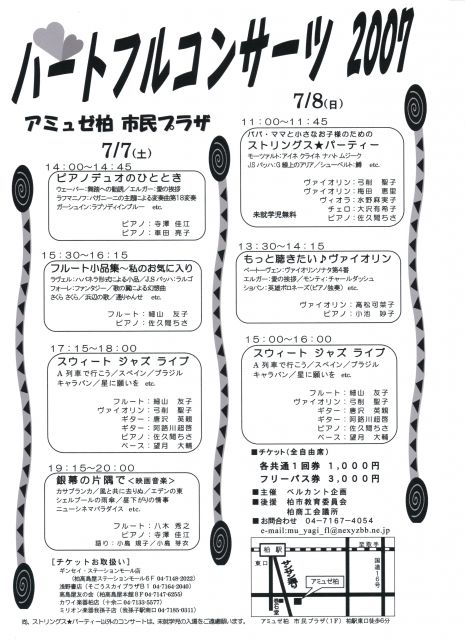 ハートフルコンサーツ 2007
アミュゼ柏 市民プラザ
7/7(土)
14:00～14:45
ピアノデュオのひととき
ウェーバー:舞踏への勧誘／エルガー:愛の挨拶
ラフマニノフ:パガニーニの主題による変奏曲第18変奏
ガーシュイン:ラプソディインブルー etc.
ピアノ:寺澤 佳江
ピアノ:車田 亮子
15:30～16:15
フルート小品集～私のお気に入り
ラヴェル:ハバネラ形式による小品／J.S.バッハ:ラルゴ
フォーレ:ファンタジー／歌の翼による幻想曲
さくら さくら／浜辺の歌／通りゃんせ etc.
フルート:細山 友子
ピアノ:佐久間ちさ
17:15～18:00
スウィート ジャズ ライブ
A 列車で行こう／スペイン／ブラジル
キャラバン／星に願いを etc.
フルート:細山 友子
ヴァイオリン:弓削 聖子
ギター:唐沢 英親
ギター:阿路川超啓
ピアノ:佐久間ちさ
ベース:望月 大輔
19:15～20:00
銀幕の片隅で<映画音楽>
カサブランカ／風と共に去りぬ／エデンの東
シェルブールの雨傘／昼下がりの情事
ニューシネマパラダイス etc.
フルート:八木 秀之
ピアノ:寺澤 佳江
語り:小島 規子／小島 芽衣
[チケットお取扱い]
ギンセイ・ステーションモール店
(柏高島屋ステーションモール6F 04-7148-2022)
浅野書店(そごうスカイプラザB1 04-7164-2040)
高島屋友の会(柏高島屋本館8F 04-7147-6255)
カワイ楽器柏店(十余二04-7133-5577)
ミリオン楽器我孫子店(我孫子駅南口04-7185-0311)
7/8(日)
11:00～11:45
パパ・ママと小さなお子様のための
ストリングス★パーティー
モーツァルト:アイネ クライネ ナハト ムジーク
J.S.バッハ:G 線上のアリア／シューベルト:鱒 etc.
ヴァイオリン:弓削 聖子
ヴァイオリン:梅田 恵里
ヴィオラ:水野麻実子
チェロ:大沢有希子
未就学児無料 ピアノ:佐久間ちさ
13:30～14:15
もっと聴きたい♪ヴァイオリン
ベートーヴェン:ヴァイオリンソナタ第4番
エルガー:愛の挨拶／モンティ:チャールダッシュ
ショパン:英雄ポロネーズ(ピアノ独奏) etc.
ヴァイオリン:高松可菜子
ピアノ:小池 妙子
15:00～16:00
スウィート ジャズ ライブ
A 列車で行こう／スペイン／ブラジル
キャラバン／星に願いを etc.
フルート:細山 友子
ヴァイオリン:弓削 聖子
ギター:唐沢 英親
ギター:阿路川超啓
ピアノ:佐久間ちさ
ベース:望月 大輔
■チケット(全自由席)
各共通1回券 1,000円
フリーパス券 3,000円
■主催 ベルカント企画
■後援 柏市教育委員会
柏商工会議所
■お問合わせ 04-7167-4054
e-mail:mu_yagi_fl@nexyzbb.ne.jp
柏 駅
至取手
東口
サンサン通り
国道16号
アミュゼ柏
尚、ストリングス★パーティー以外のコンサートは、未就学児の入場をご遠慮願います。
アミュゼ柏 市民プラザ(1F) 柏駅東口徒歩6分